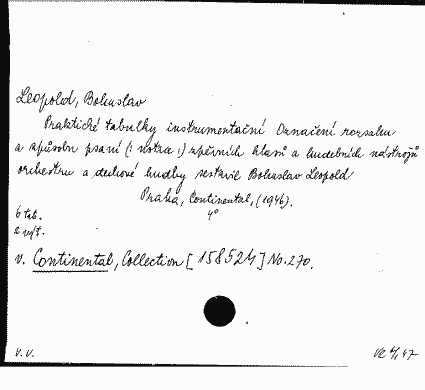 Leopold, Bohuslav
Praktické tabulky instrumentační Označení rozsahu
a způsobu psaní (: notace :) zpěvních hlasů a hudebních nástrojů
orchestru a dechové hudby sestavil Bohuslav Leopold
Praha, Continental, (1946).
4°
6 tab.
v. Continental, Collection [158524] No. 270.
v.v.